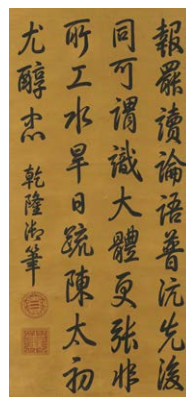 報罷讀論語普沆先後
同可謂識大體更張非
所工水旱日疏陳太初
尤醇志
乾隆御筆